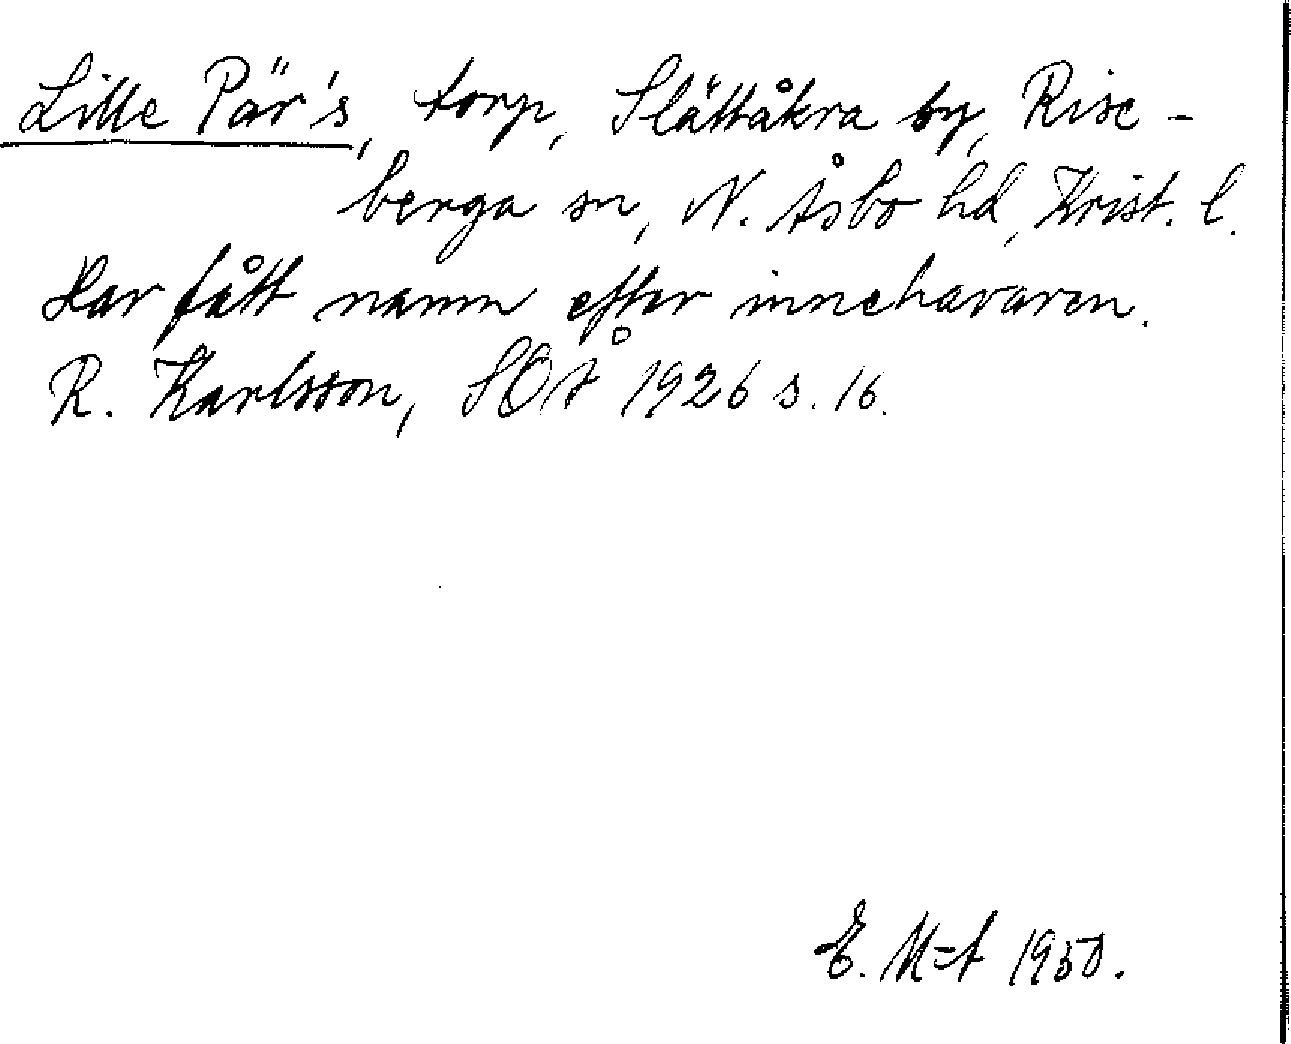 Lille Pär's, torp, Slättåkra by, Rise-
berga sn, N. Åsbo hd, Krist. l.
Har fått namn efter innehavaren.
R. Karlsson, SOÅ 1926 s. 16.
E. M-t 1950.